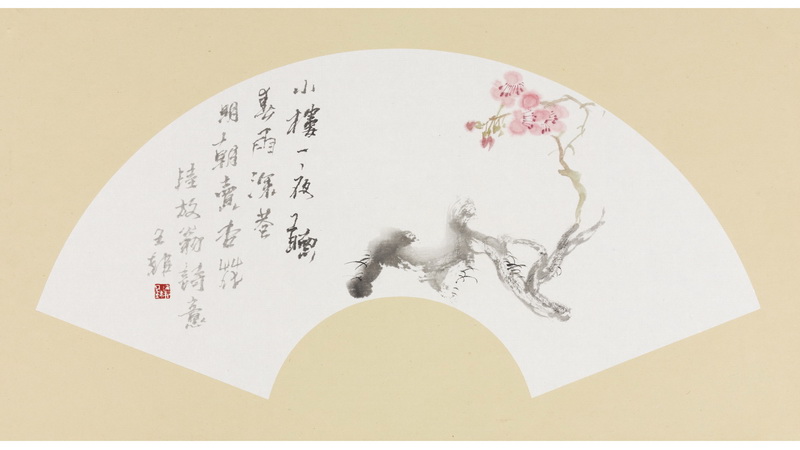 小樓一夜聽
春雨深巷
明朝賣杏花
陸放翁詩意